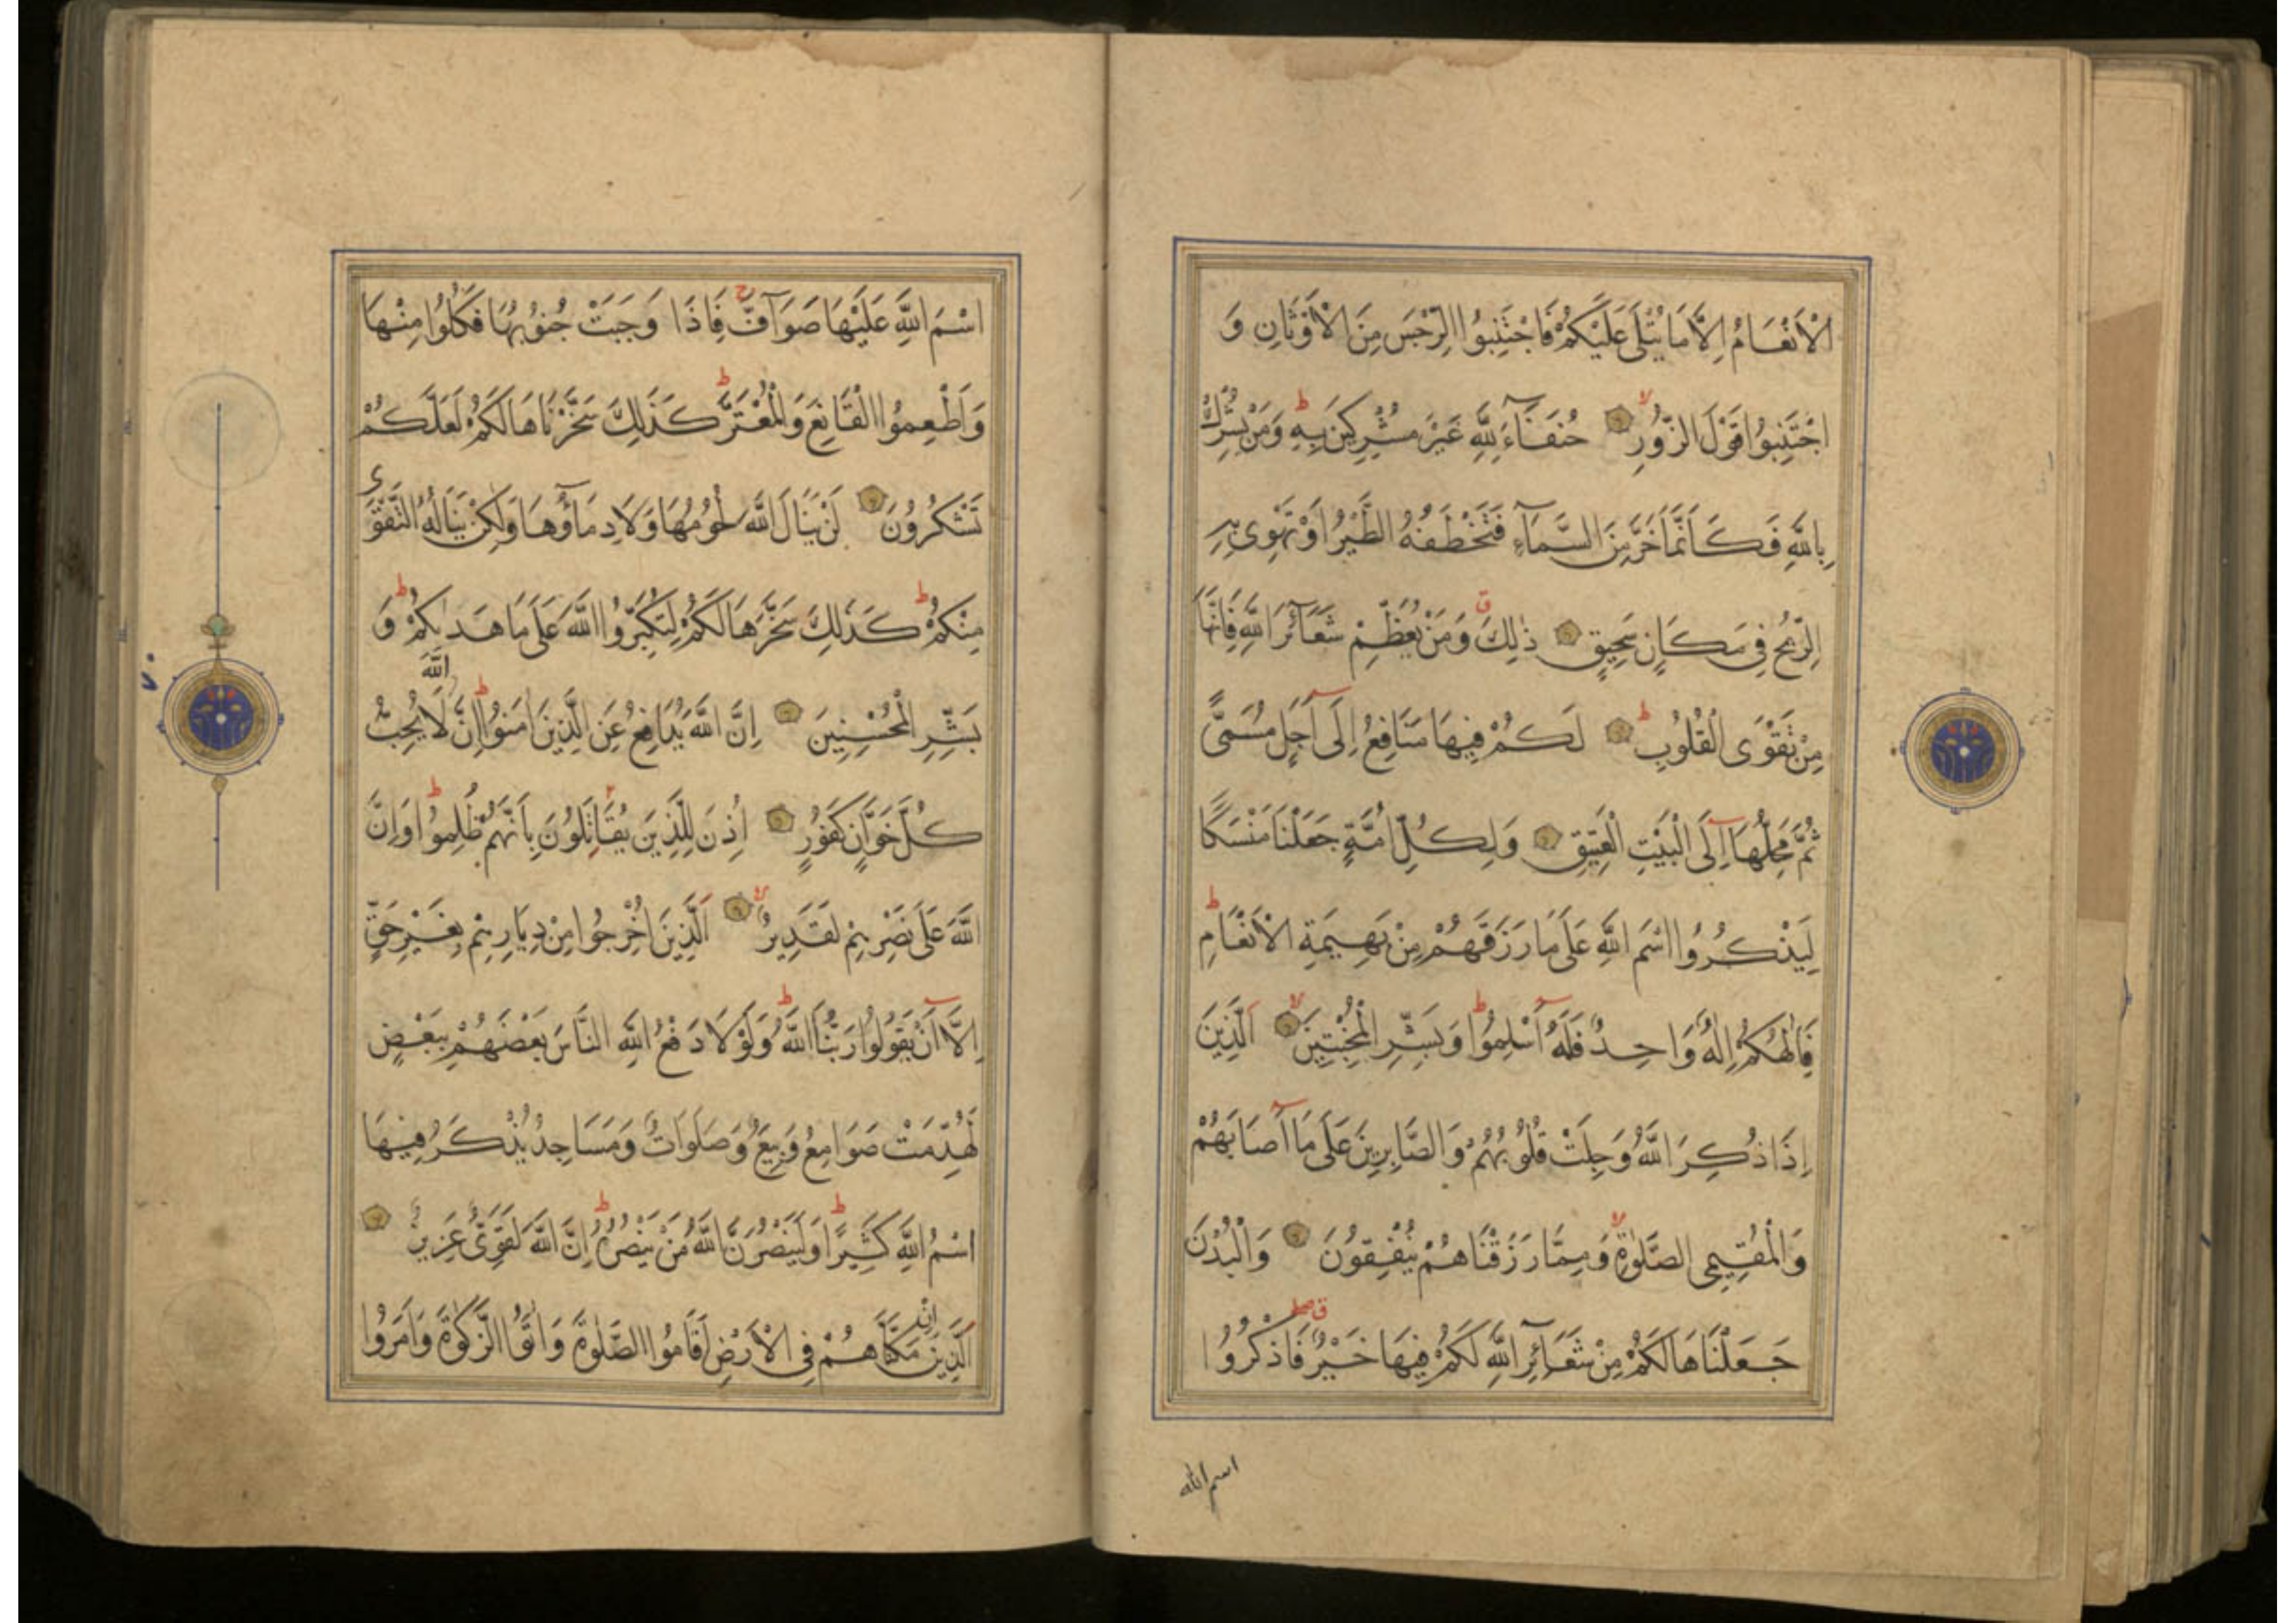 الْاَنْعَامُ اِلَّا مَا يُتْلٰى عَلَيْكُمْ فَاجْتَنِبُوا الرِّجْسَ مِنَ الْاَوْثَانِ وَ
اجْتَنِبُوا قَوْلَ الزُّورِ حُنَفَآءَ لِلّٰهِ غَيْرَ مُشْرِكِينَ بِهِ وَمَنْ يُشْرِكْ
بِاللّٰهِ فَكَاَنَّمَا خَرَّ مِنَ السَّمَآءِ فَتَخْطَفُهُ الطَّيْرُ اَوْ تَهْوِى بِهِ
الرِّيحُ فِى مَكَانٍ سَحِيقٍ ذٰلِكَ وَمَنْ يُعَظِّمْ شَعَآئِرَ اللّٰهِ فَاِنَّهَا
مِنْ تَقْوَى الْقُلُوبِ لَكُمْ فِيهَا مَنَافِعُ اِلٰٓى اَجَلٍ مُسَمًّى
ثُمَّ مَحِلُّهَآ اِلَى الْبَيْتِ الْعَتِيقِ وَلِكُلِّ اُمَّةٍ جَعَلْنَا مَنْسَكًا
لِيَذْكُرُوا اسْمَ اللّٰهِ عَلٰى مَا رَزَقَهُمْ مِنْ بَهِيمَةِ الْاَنْعَامِ
فَاِلٰهُكُمْ اِلٰهٌ وَاحِدٌ فَلَهُٓ اَسْلِمُوا وَبَشِّرِ الْمُخْبِتِينَ اَلَّذِينَ
اِذَا ذُكِرَ اللّٰهُ وَجِلَتْ قُلُوبُهُمْ وَالصَّابِرِينَ عَلٰى مَآ اَصَابَهُمْ
وَالْمُقِيمِى الصَّلٰوةِ وَمِمَّا رَزَقْنَاهُمْ يُنْفِقُونَ وَالْبُدْنَ
جَعَلْنَاهَا لَكُمْ مِنْ شَعَآئِرِ اللّٰهِ لَكُمْ فِيهَا خَيْرٌ فَاذْكُرُوا
اسم الله
اسْمَ اللّٰهِ عَلَيْهَا صَوَآفَّ فَاِذَا وَجَبَتْ جُنُوبُهَا فَكُلُوا مِنْهَا
وَاَطْعِمُوا الْقَانِعَ وَالْمُعْتَرَّ كَذٰلِكَ سَخَّرْنَاهَا لَكُمْ لَعَلَّكُمْ
تَشْكُرُونَ لَنْ يَنَالَ اللّٰهَ لُحُومُهَا وَلَا دِمَآؤُهَا وَلٰكِنْ يَنَالُهُ التَّقْوٰى
مِنْكُمْ كَذٰلِكَ سَخَّرَهَا لَكُمْ لِتُكَبِّرُوا اللّٰهَ عَلٰى مَا هَدٰيكُمْ وَ
بَشِّرِ الْمُحْسِنِينَ اِنَّ اللّٰهَ يُدَافِعُ عَنِ الَّذِينَ اٰمَنُوا اِنَّ اللّٰهَ لَا يُحِبُّ
كُلَّ خَوَّانٍ كَفُورٍ اُذِنَ لِلَّذِينَ يُقَاتَلُونَ بِاَنَّهُمْ ظُلِمُوا وَاِنَّ
اللّٰهَ عَلٰى نَصْرِهِمْ لَقَدِيرٌ اَلَّذِينَ اُخْرِجُوا مِنْ دِيَارِهِمْ بِغَيْرِ حَقٍّ
اِلَّآ اَنْ يَقُولُوا رَبُّنَا اللّٰهُ وَلَوْلَا دَفْعُ اللّٰهِ النَّاسَ بَعْضَهُمْ بِبَعْضٍ
لَهُدِّمَتْ صَوَامِعُ وَبِيَعٌ وَصَلَوَاتٌ وَمَسَاجِدُ يُذْكَرُ فِيهَا
اسْمُ اللّٰهِ كَثِيرًا وَلَيَنْصُرَنَّ اللّٰهُ مَنْ يَنْصُرُهُ اِنَّ اللّٰهَ لَقَوِىٌّ عَزِيزٌ
اَلَّذِينَ اِنْ مَكَّنَّاهُمْ فِى الْاَرْضِ اَقَامُوا الصَّلٰوةَ وَاٰتَوُا الزَّكٰوةَ وَاَمَرُوا